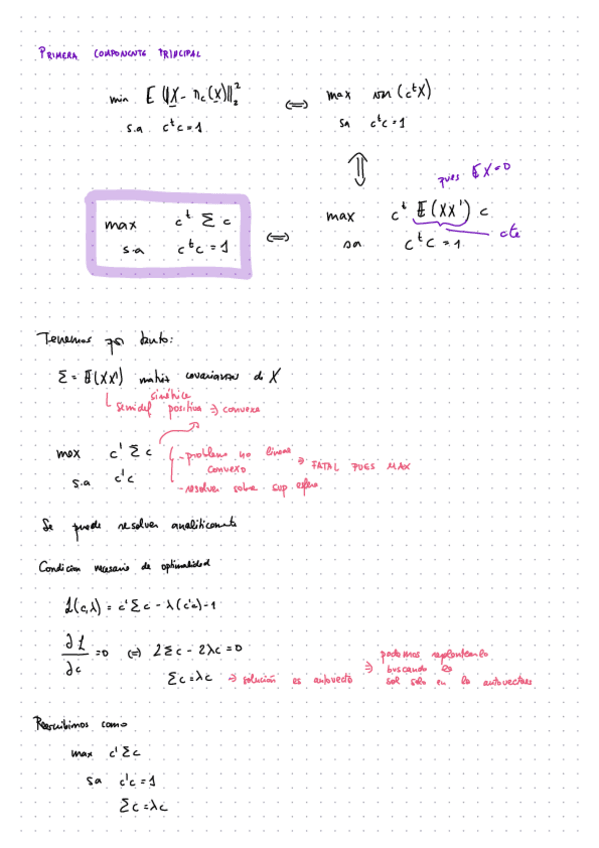 PRIMERA COMPONENTE PRINCIPAL
min E[‖X - π_c(X)‖²₂ ⟺ max var (cᵗX)
s.a cᵗc = 1 sa cᵗc = 1
⇕ pues E X = 0
max cᵗ Σ c ⟺ max cᵗ E(XX') c
s.a cᵗc = 1 sa cᵗc = 1 cte
Tenemos por tanto:
Σ = E(XX') matriz covarianzas de X
simétrica
semidef positiva ⇒ convexa
max c' Σ c - problema no lineal
convexo ⇒ FATAL PUES MAX
s.a c'c - resolver sobre sup esfera
Se puede resolver analíticamente
Condición necesaria de optimalidad
L(c,λ) = c'Σc - λ(c'c)-1
∂L/∂c = 0 ⟺ 2Σc - 2λc = 0
Σc = λc ⇒ solución es autovector ⇒ podemos replantearlo
buscando la
sol solo en los autovectores
Reescribimos como
max c'Σc
sa c'c = 1
Σc = λc